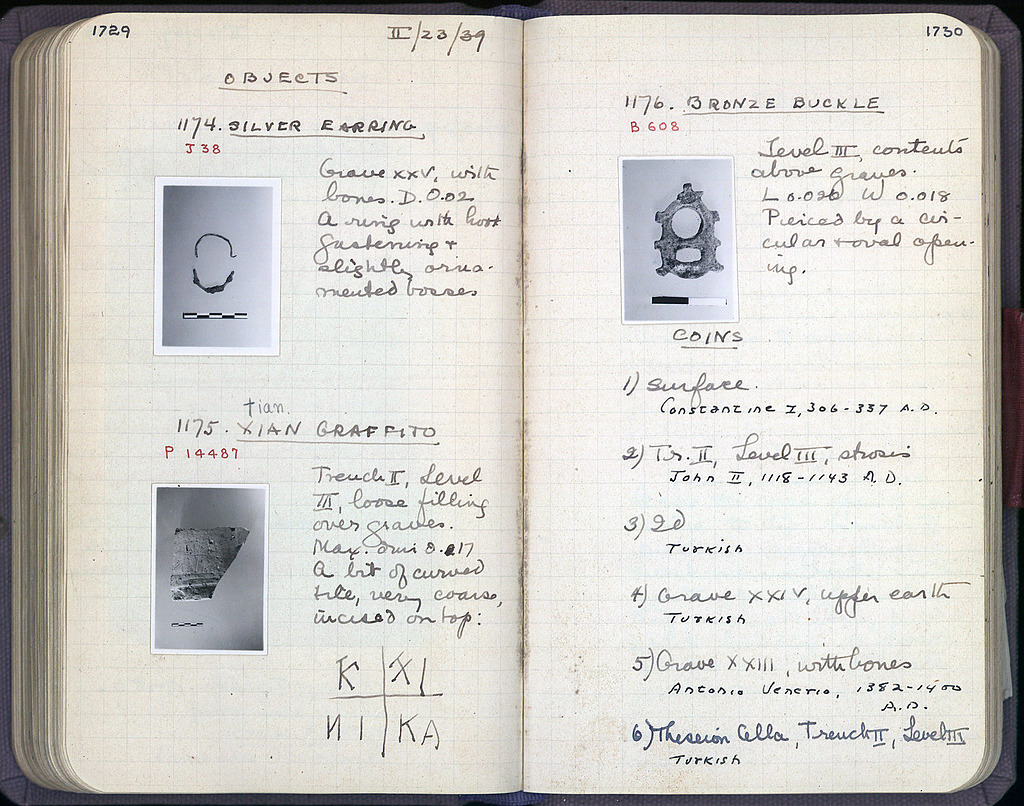 1729
II/23/39
OBJECTS
1174. SILVER EARRING
J 38
Grave XXV, with
bones. D. 0.02
A ring with hook
fastening +
slightly orna-
mented bosses
tian.
1175. XIAN GRAFFITO
P 14487
Trench II, Level
III, loose filling
over graves.
Max. dim 0.017
A bit of curved
tile, very coarse,
incised on top:
K XI
NI KA
1730
1176. BRONZE BUCKLE
B 608
Level III, contents
above graves.
L 0.026 W 0.018
Pierced by a cir-
cular + oval open-
ing.
COINS
1) Surface.
Constantine I, 306-337 A.D.
2) Tr. II, Level III, strosis
John II, 1118-1143 A.D.
3) 2d
Turkish
4) Grave XXIV, upper earth
Turkish
5) Grave XXIII, with bones
Antonio Venerio, 1382-1400
A.D.
6) Theseion Cella, Trench II, Level III
Turkish